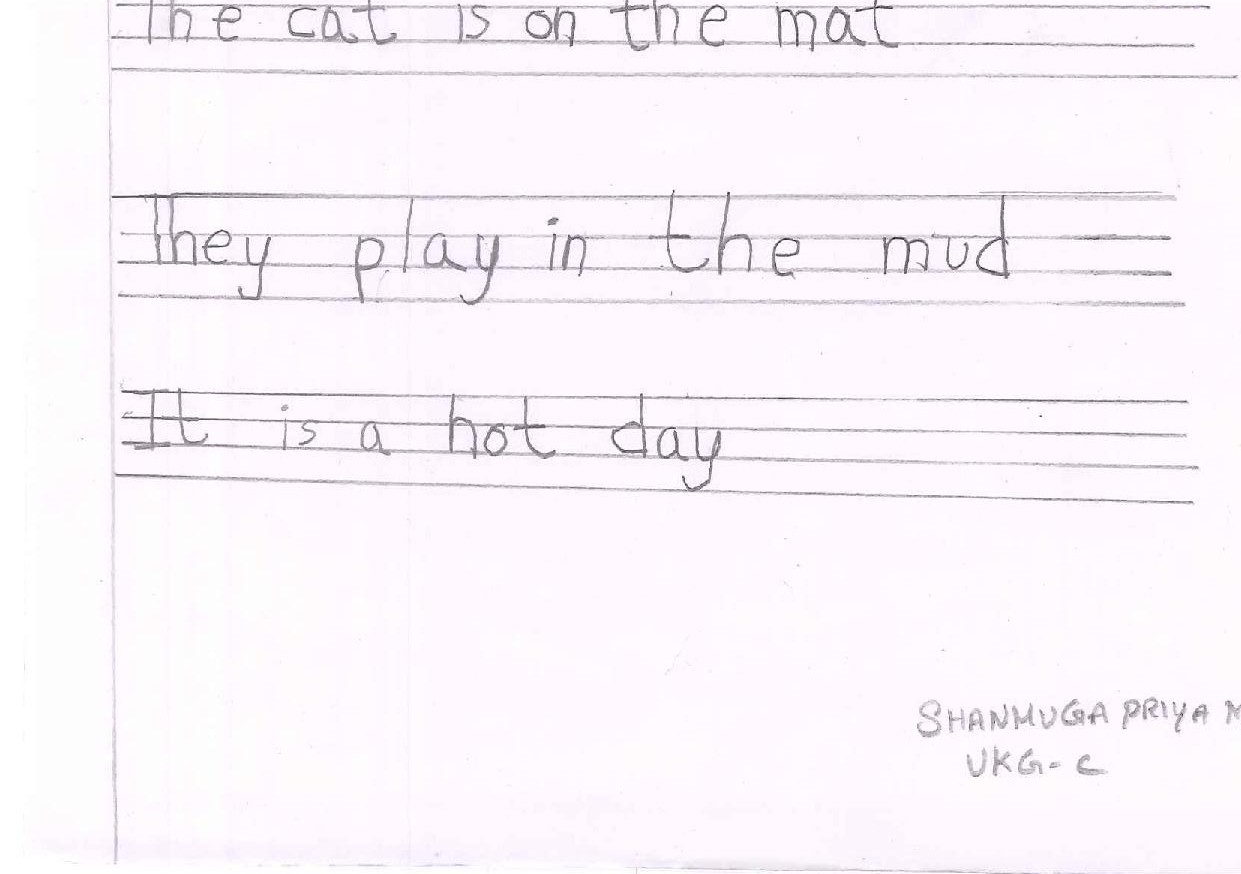 The cat is on the mat
They play in the mud
It is a hot day
SHANMUGA PRIYA M
UKG-C